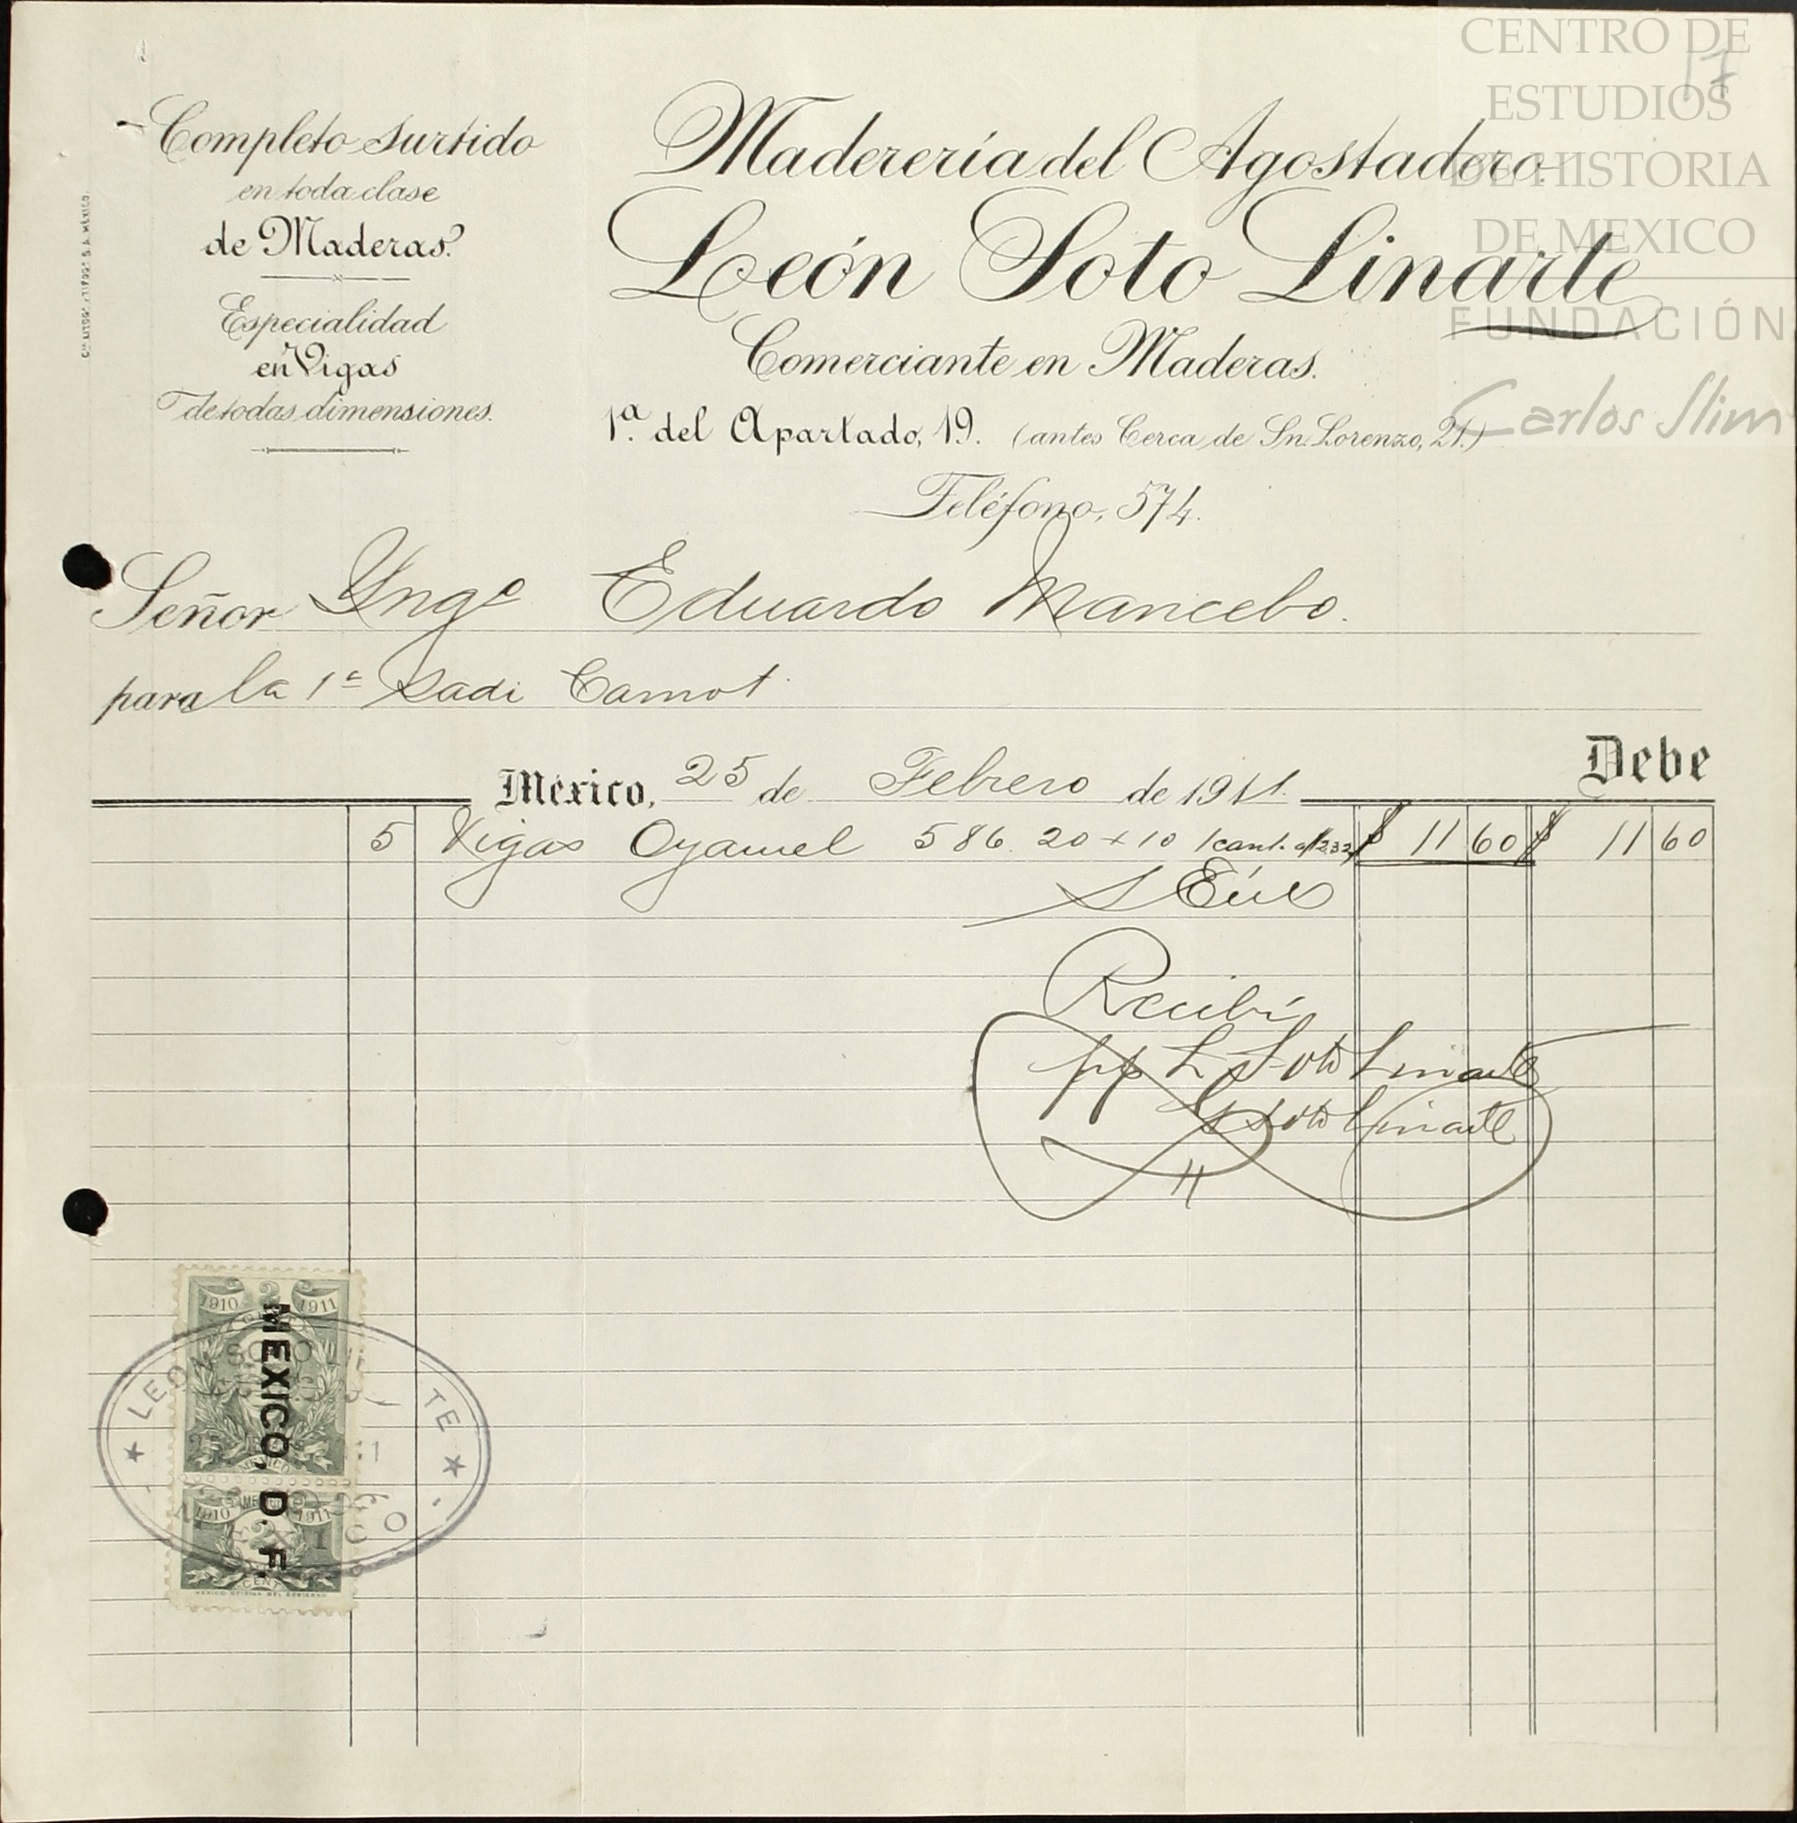 CENTRO DE
ESTUDIOS
DE HISTORIA
DE MEXICO
FUNDACIÓN
Carlos Slim
17
Completo Surtido
en toda clase
de Maderas.
Especialidad
en Vigas
de todas dimensiones.
Maderería del Agostadero.
León Soto Linarte
Comerciante en Maderas.
1ª. del Apartado, 19. (antes Cerca de Sn. Lorenzo, 21.)
Teléfono, 574.
Señor Yngo Eduardo Mancebo.
para la 1a Sadi Carnot.
México, 25 de Febrero de 1911. Debe
5 Vigas Oyamel 586 20 x 10 1 cant. a $2.32 $ 11 60 $ 11 60
Recibí
pp L Soto Linarte
Soto Linarte
1910 2 1911
MEXICO, D. F.
LEON SOTO TE
MEXICO
1910 1911